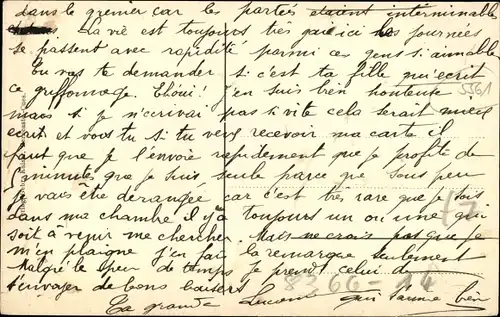 dans le grenier car les parties étaient interminable
La vie est toujours très gaie ici les journées
se passent avec rapidité parmi ces gens si aimable
tu vas te demander si c'est ta fille qui écrit
ce griffonnage, Ehoui! j'en suis bien honteuse
mais si je n'écrivai pas si vite cela serait mieux
écrit et vois tu si tu veux recevoir ma carte il
faut que je l'envoie rapidement que je profite de
5 minutes que je suis seule parce que sous peu
je vais être dérangée car c'est très rare que je sois
dans ma chambre il y'a toujours un ou une qui
soit à venir me chercher. Mais ne crois pas que je
m'en plaigne j'en fais la remarque seulement
Malgré le peu de temps je prend celui de
t'envoyer de bons baisers
Ta grande qui t'aime bien
5561
8366-14